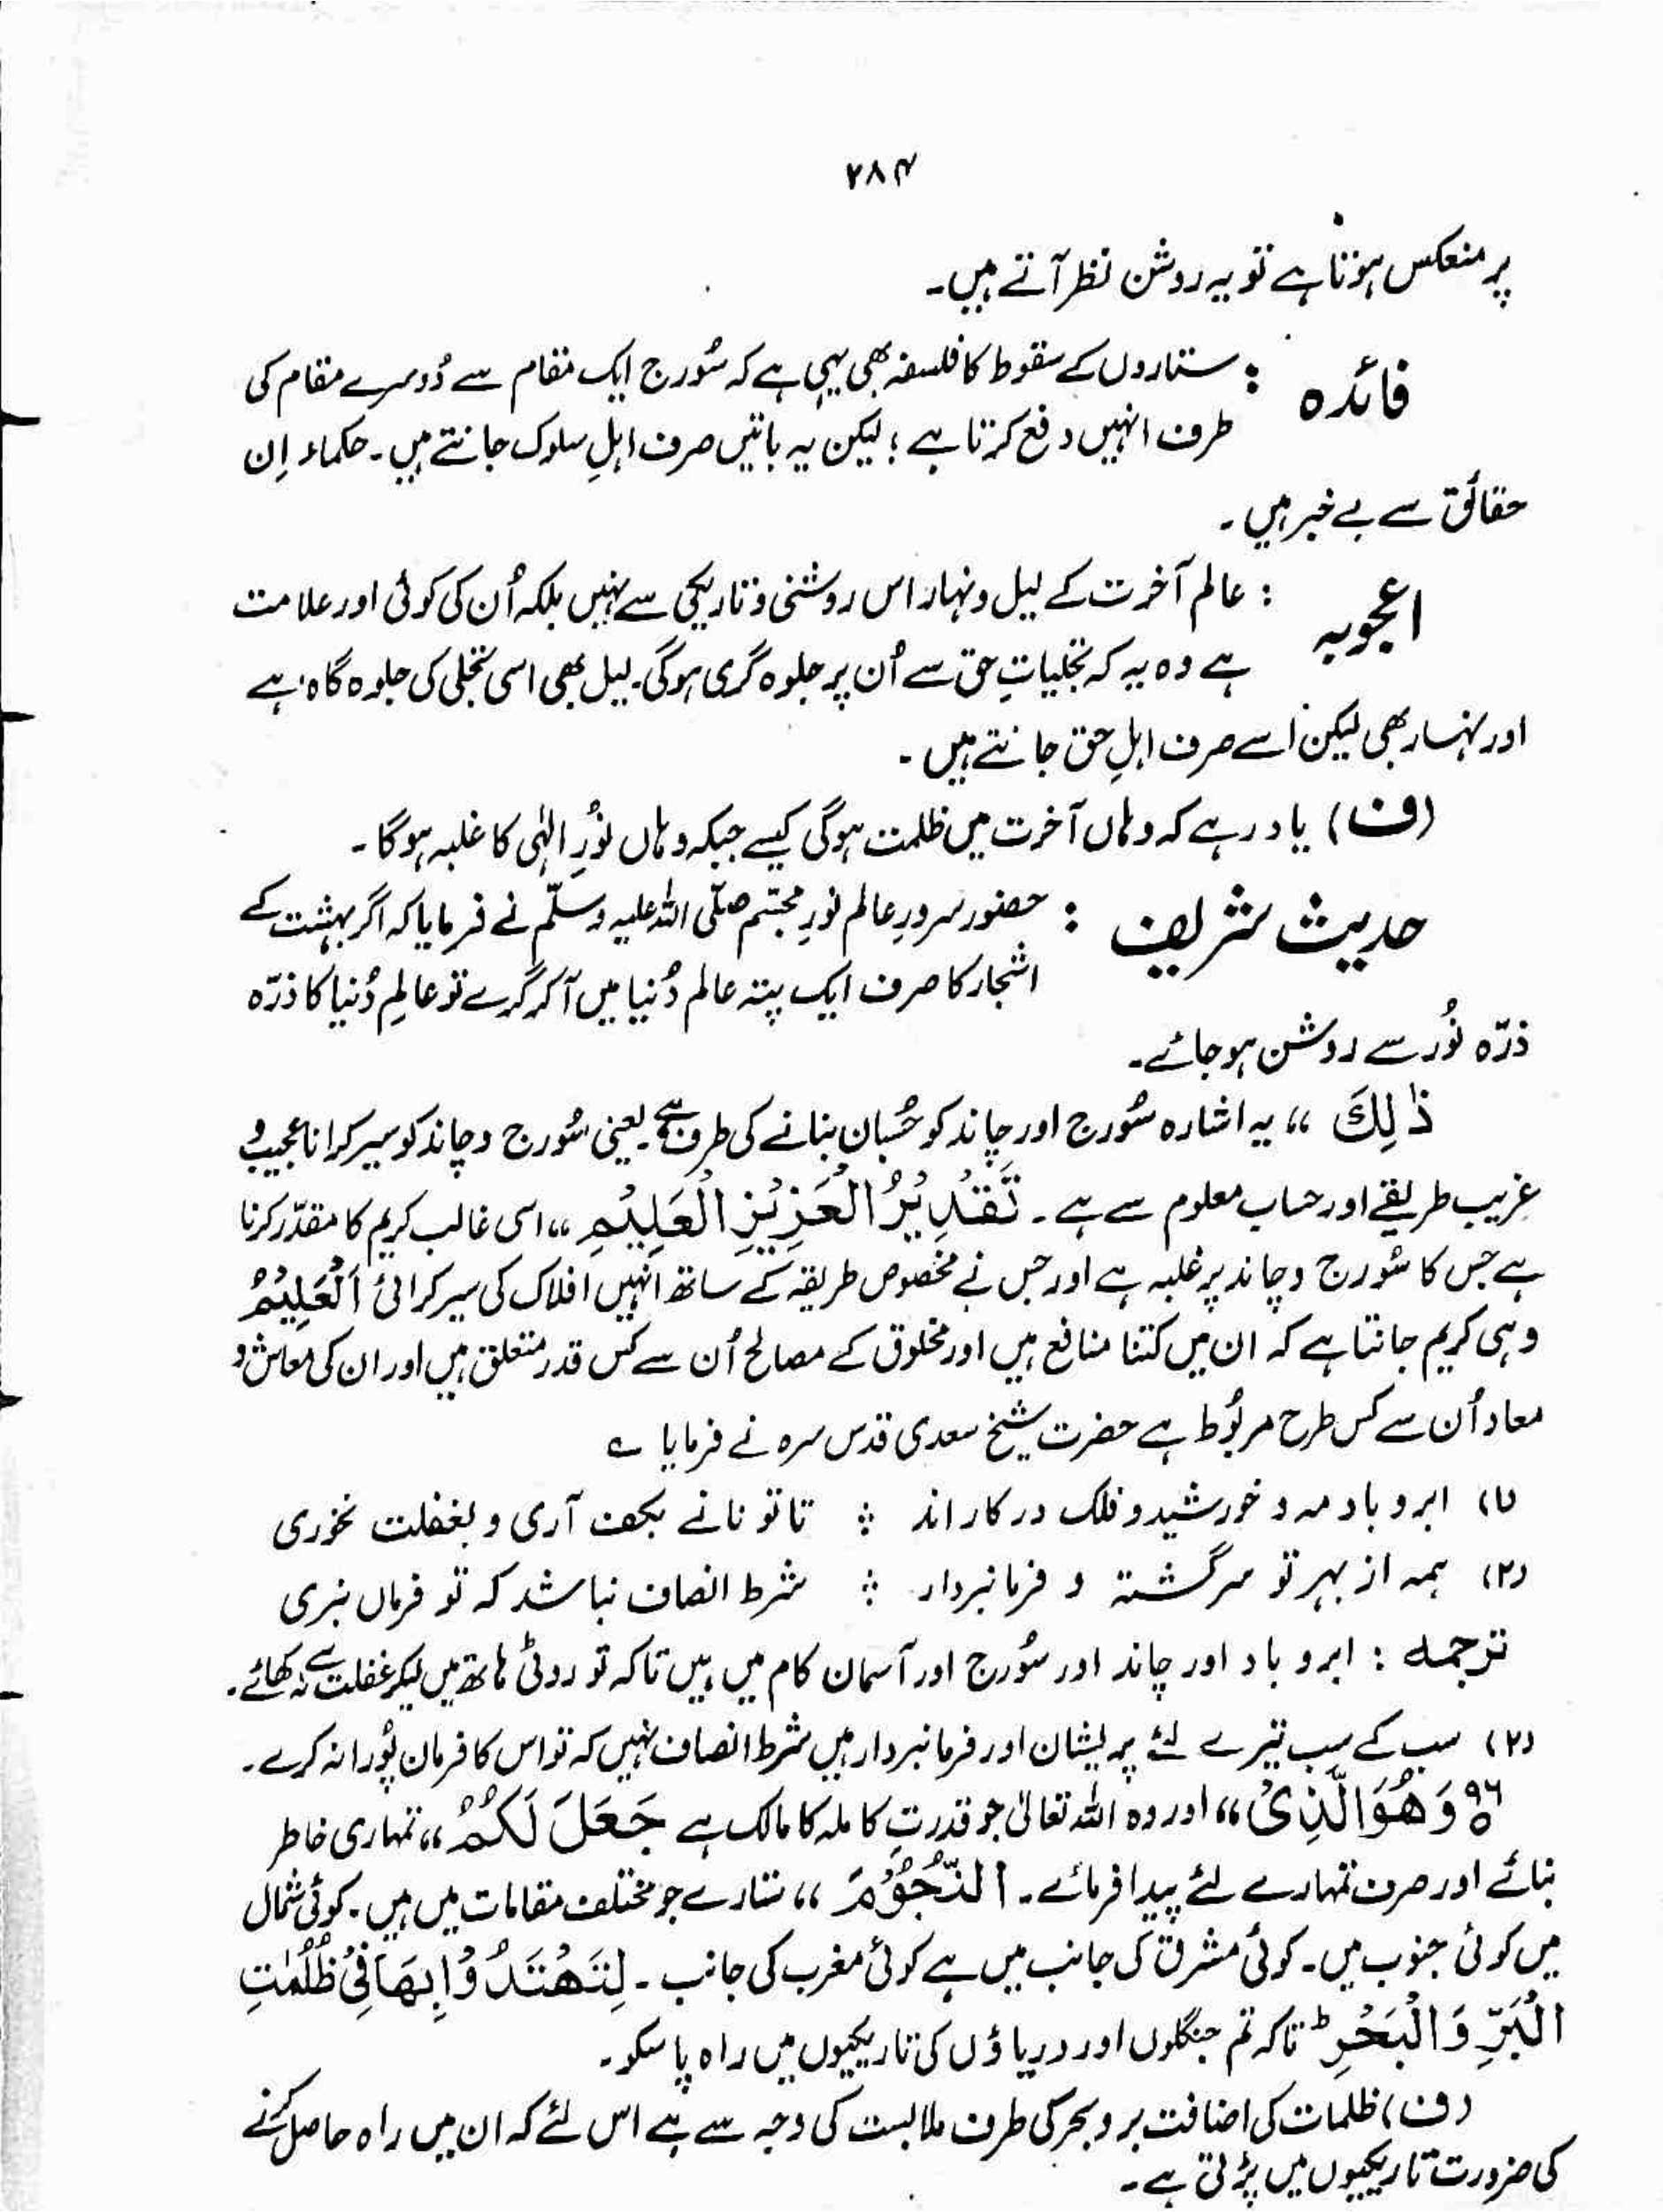 ۲۸۴
پر منعکس ہوتا ہے تو یہ روشن نظر آتے ہیں۔
فائدہ : ستاروں کے سقوط کا فلسفہ بھی یہی ہے کہ سُورج ایک مقام سے دُوسرے مقام کی
طرف انہیں دفع کرتا ہے ؛ لیکن یہ باتیں صرف اہلِ سلوک جانتے ہیں۔ حکماء اِن
حقائق سے بے خبر ہیں ۔
اعجوبہ : عالم آخرت کے لیل و نہار اس روشنی و تاریکی سے نہیں بلکہ اُن کی کوئی اور علامت
ہے وہ یہ کہ تجلیاتِ حق سے اُن پر جلوہ گری ہوگی۔ لیل بھی اسی تجلی کی جلوہ گاہ ہے
اور نہار بھی لیکن اُسے صرف اہلِ حق جانتے ہیں ۔
(ف) یاد رہے کہ وہاں آخرت میں ظلمت ہوگی کیسے جبکہ وہاں نُورِ الٰہی کا غلبہ ہوگا ۔
حدیث شریف : حضور سرورِ عالم نورِ مجسّم صلّی اللہ علیہ وسلّم نے فرمایا کہ اگر بہشت کے
اشجار کا صرف ایک پتہ عالم دُنیا میں آکر گرے تو عالمِ دُنیا کا ذرّہ
ذرّہ نُور سے روشن ہو جائے۔
ذٰلِکَ ،، یہ اشارہ سُورج اور چاند کو حُسبان بنانے کی طرف ہے۔ یعنی سُورج و چاند کو سیر کرانا عجیب و
غریب طریقے اور حساب معلوم سے ہے ۔ تَقْدِیْرُ الْعَزِیْزِ الْعَلِیْمِ ،، اسی غالب کریم کا مقدّر کرنا
ہے جس کا سُورج و چاند پر غلبہ ہے اور جس نے مخصوص طریقہ کے ساتھ انہیں افلاک کی سیر کرائی اَلْعَلِیْمُ
وہی کریم جانتا ہے کہ ان میں کتنا منافع ہیں اور مخلوق کے مصالح اُن سے کس قدر متعلق ہیں اور ان کی معاش و
معاد اُن سے کس طرح مربُوط ہے حضرت شیخ سعدی قدس سرہ نے فرمایا ؎
(۱) ابر و باد مہ و خورشید و فلک در کار اند ⁘ تا تو نانے بکف آری و بغفلت نخوری
(۲) ہمہ از بہر تو سرگشتہ و فرمانبردار ⁘ شرط انصاف نباشد کہ تو فرماں نبری
ترجمہ : ابر و باد اور چاند اور سُورج اور آسمان کام میں ہیں تاکہ تو روٹی ہاتھ میں لیکر غفلت سے نہ کھائے۔
(۲) سب کے سب تیرے لئے پریشان اور فرمانبردار ہیں شرط انصاف نہیں کہ تو اس کا فرمان پُورا نہ کرے ۔
۹۶ وَ ھُوَ الَّذِیْ ،، اور وہ اللہ تعالیٰ جو قدرتِ کاملہ کا مالک ہے جَعَلَ لَکُمُ ،، تمہاری خاطر
بنائے اور صرف تمہارے لئے پیدا فرمائے۔ النُّجُوْمَ ،، ستارے جو مختلف مقامات میں ہیں۔ کوئی شمال
میں کوئی جنوب میں۔ کوئی مشرق کی جانب میں ہے کوئی مغرب کی جانب ۔ لِتَھْتَدُوْا بِھَا فِیْ ظُلُمٰتِ
الْبَرِّ وَ الْبَحْرِ ؕ تاکہ تم جنگلوں اور دریاؤں کی تاریکیوں میں راہ پا سکو۔
(ف) ظلمات کی اضافت بر و بحر کی طرف ملابست کی وجہ سے ہے اس لئے کہ ان میں راہ حاصل کرنے
کی ضرورت تاریکیوں میں پڑتی ہے۔